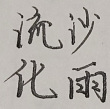 流沙
化雨